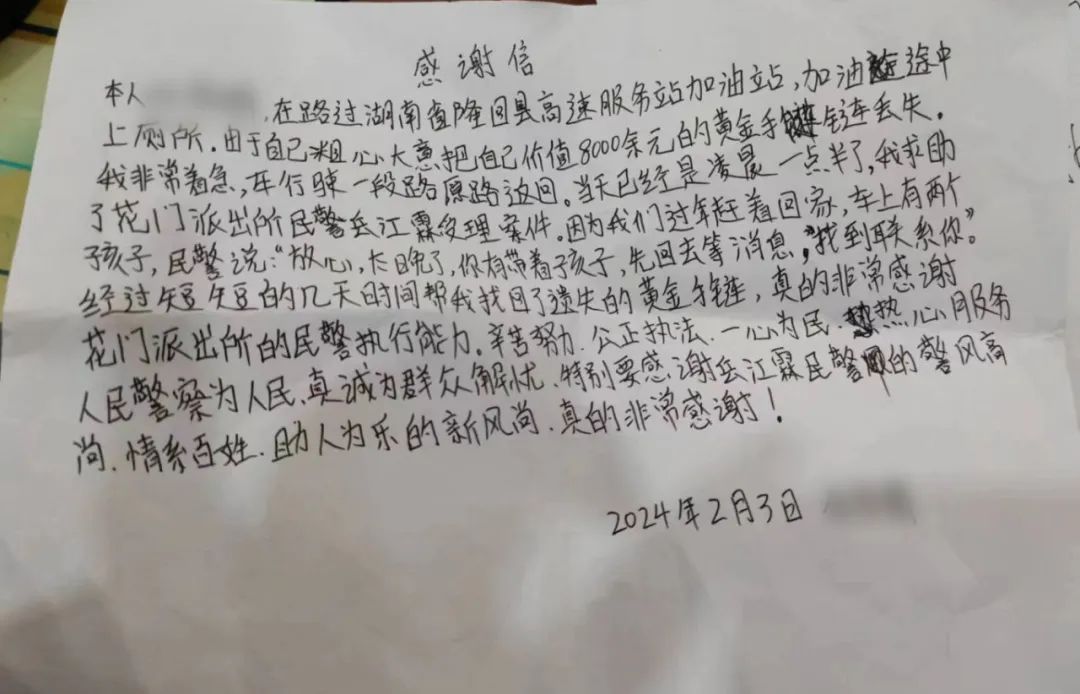 感谢信
本人 ,在路过湖南省隆回县高速服务站加油站,加油途中
上厕所.由于自己粗心大意把自己价值8000余元的黄金手链丢失.
我非常着急,车行驶一段路原路返回。当天已经是凌晨一点半了,我求助
了花门派出所民警岳江霖受理案件.因为我们过年赶着回家,车上有两个
孩子,民警说:“放心,太晚了,你有带着孩子,先回去等消息,”找到联系你”。
经过短短的几天时间帮我找回了遗失的黄金手链,真的非常感谢
花门派出所的民警执行能力.辛苦努力.公正执法.一心为民.热心服务
人民警察为人民,真诚为群众解忧.特别要感谢岳江霖民警的警风高
尚.情系百姓.助人为乐的新风尚.真的非常感谢!
2024年2月3日